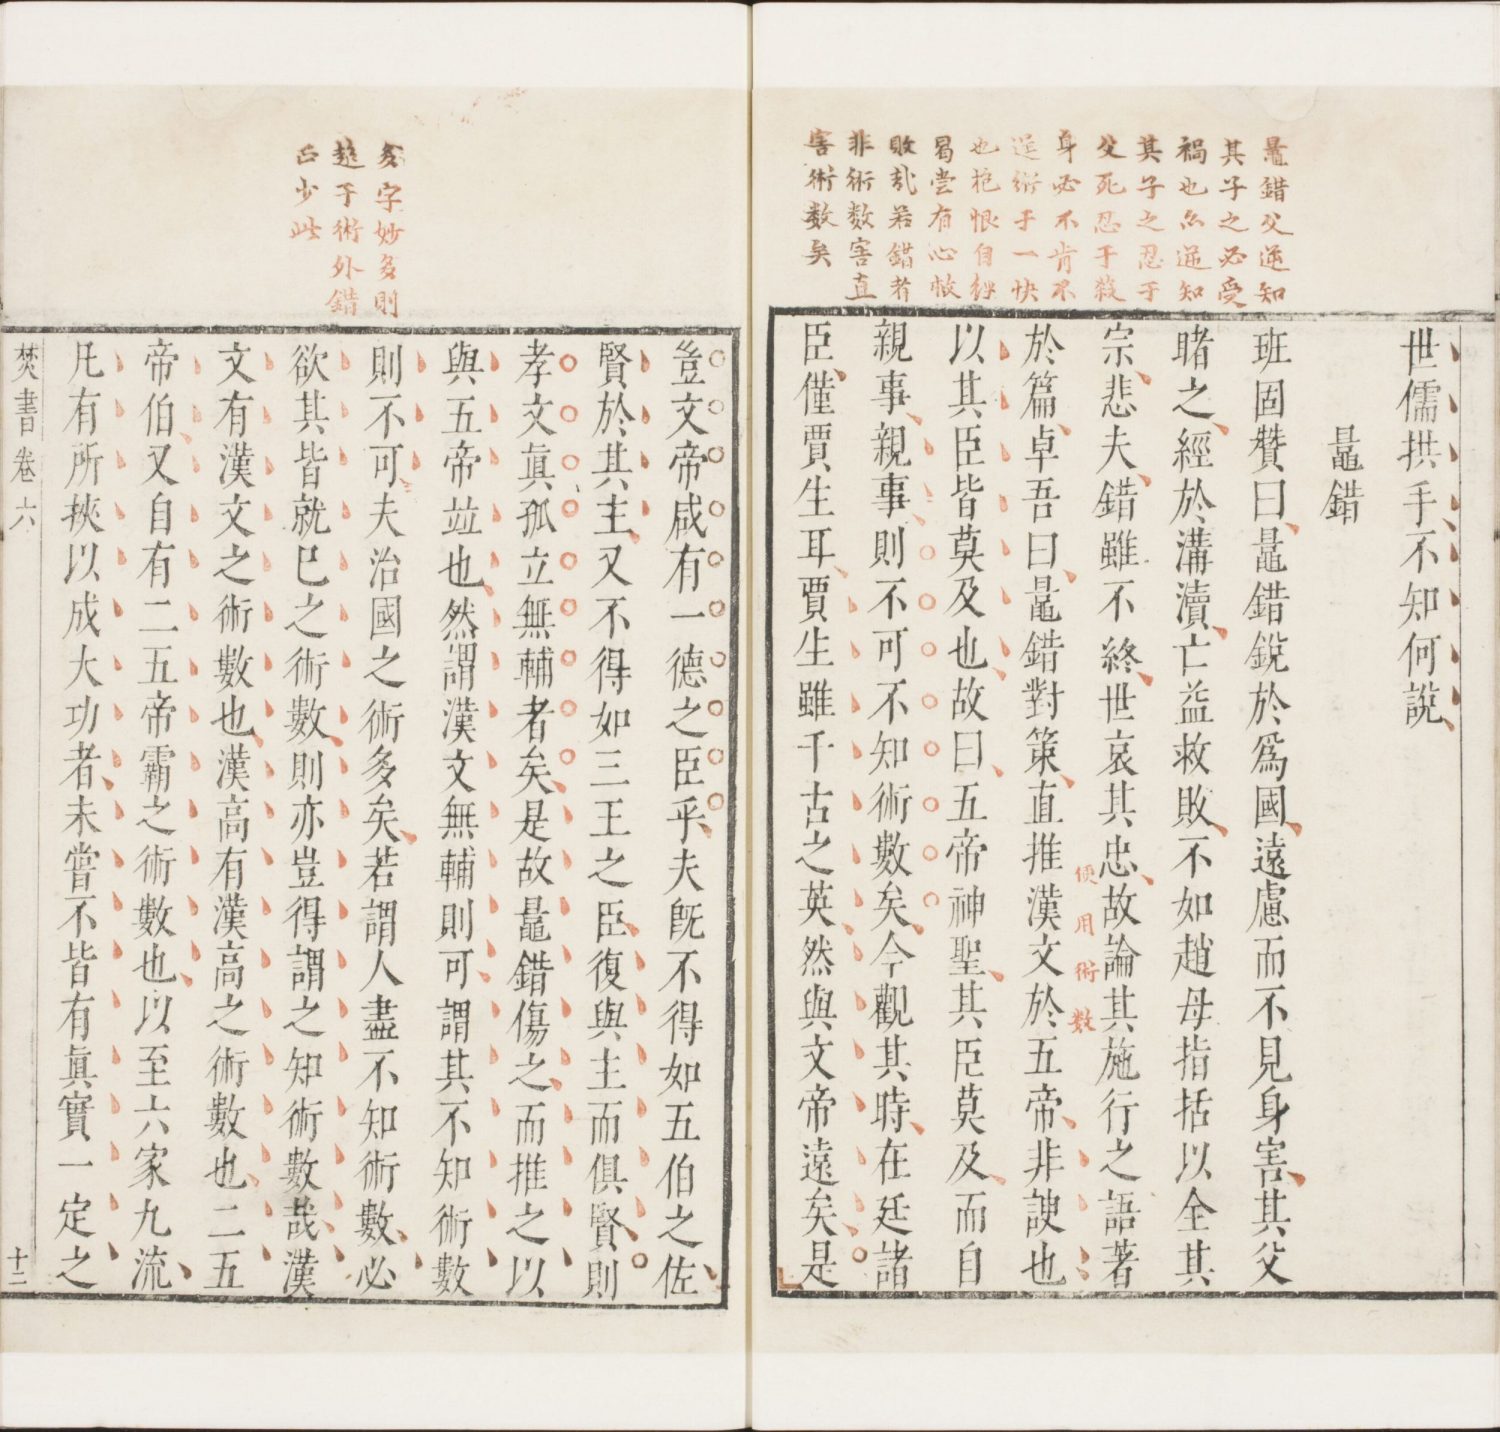 鼂錯父逆知
其子之必受
禍也亦逆知
其子之忍于
父死忍于殺
身必不肯不
逞術于一快
也抱恨自經
曷嘗有心怏
敗哉若錯者
非術數害直
害術數矣
世儒拱手不知何說
鼂錯
班固贊曰鼂錯銳於爲國遠慮而不見身害其父
睹之經於溝瀆亡益救敗不如趙母指括以全其
宗悲夫錯雖不終世哀其忠故論其施行之語著
便用術數
於篇卓吾曰鼂錯對策直推漢文於五帝非諛也
以其臣皆莫及也故曰五帝神聖其臣莫及而自
親事親事則不可不知術數矣今觀其時在廷諸
臣僅賈生耳賈生雖千古之英然與文帝遠矣是
多字妙多則
趨于術外錯
正少此
豈文帝咸有一德之臣乎夫既不得如五伯之佐
賢於其主又不得如三王之臣復與主而俱賢則
孝文眞孤立無輔者矣是故鼂錯傷之而推之以
與五帝竝也然謂漢文無輔則可謂其不知術數
則不可夫治國之術多矣若謂人盡不知術數必
欲其皆就巳之術數則亦豈得謂之知術數哉漢
文有漢文之術數也漢高有漢高之術數也二五
帝伯又自有二五帝霸之術數也以至六家九流
凡有所挾以成大功者未嘗不皆有眞實一定之
焚書卷六
十二